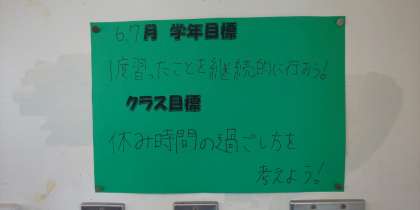 6,7月 学年目標
1度習ったことを継続的に行おう!
クラス目標
休み時間の過ごし方を
考えよう!